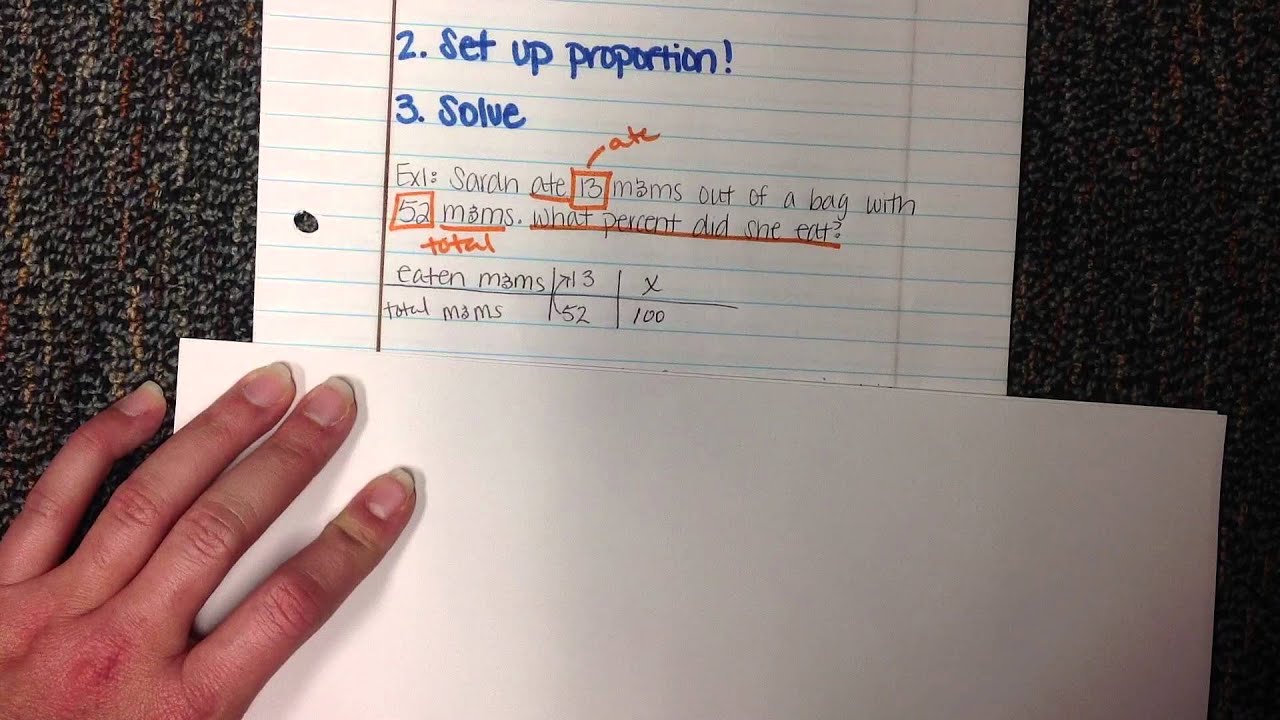 2. Set up proportion!
3. Solve
ate
Ex1: Sarah ate 13 m&ms out of a bag with
52 m&ms. What percent did she eat?
total
eaten m&ms 13 x
total m&ms 52 100